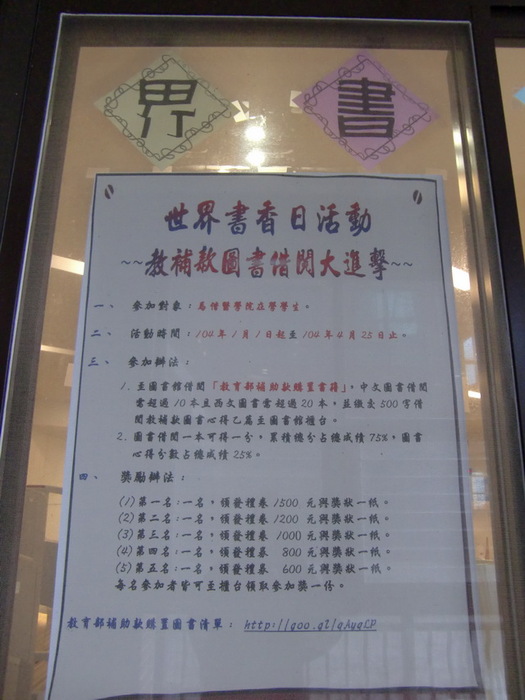 界 書
世界書香日活動
~~教補款圖書借閱大進擊~~
一、 參加對象：馬偕醫學院在學學生。
二、 活動時間：104年1月1日起至104年4月25日止。
三、 參加辦法：
1. 至圖書館借閱「教育部補助款購置書籍」，中文圖書借閱
需超過10本且西文圖書需超過20本，並繳交500字借
閱教補款圖書心得乙篇至圖書館櫃台。
2. 圖書借閱一本可得一分，累積總分占總成績75%，圖書
心得分數占總成績25%。
四、 獎勵辦法：
(1)第一名：一名，頒發禮卷1500 元與獎狀一紙。
(2)第二名：一名，頒發禮卷1200 元與獎狀一紙。
(3)第三名：一名，頒發禮卷1000 元與獎狀一紙。
(4)第四名：一名，頒發禮券 800 元與獎狀一紙。
(5)第五名：一名，頒發禮券 600 元與獎狀一紙。
每名參加者皆可至櫃台領取參加獎一份。
教育部補助款購置圖書清單： http://goo.gl/gAyqLP